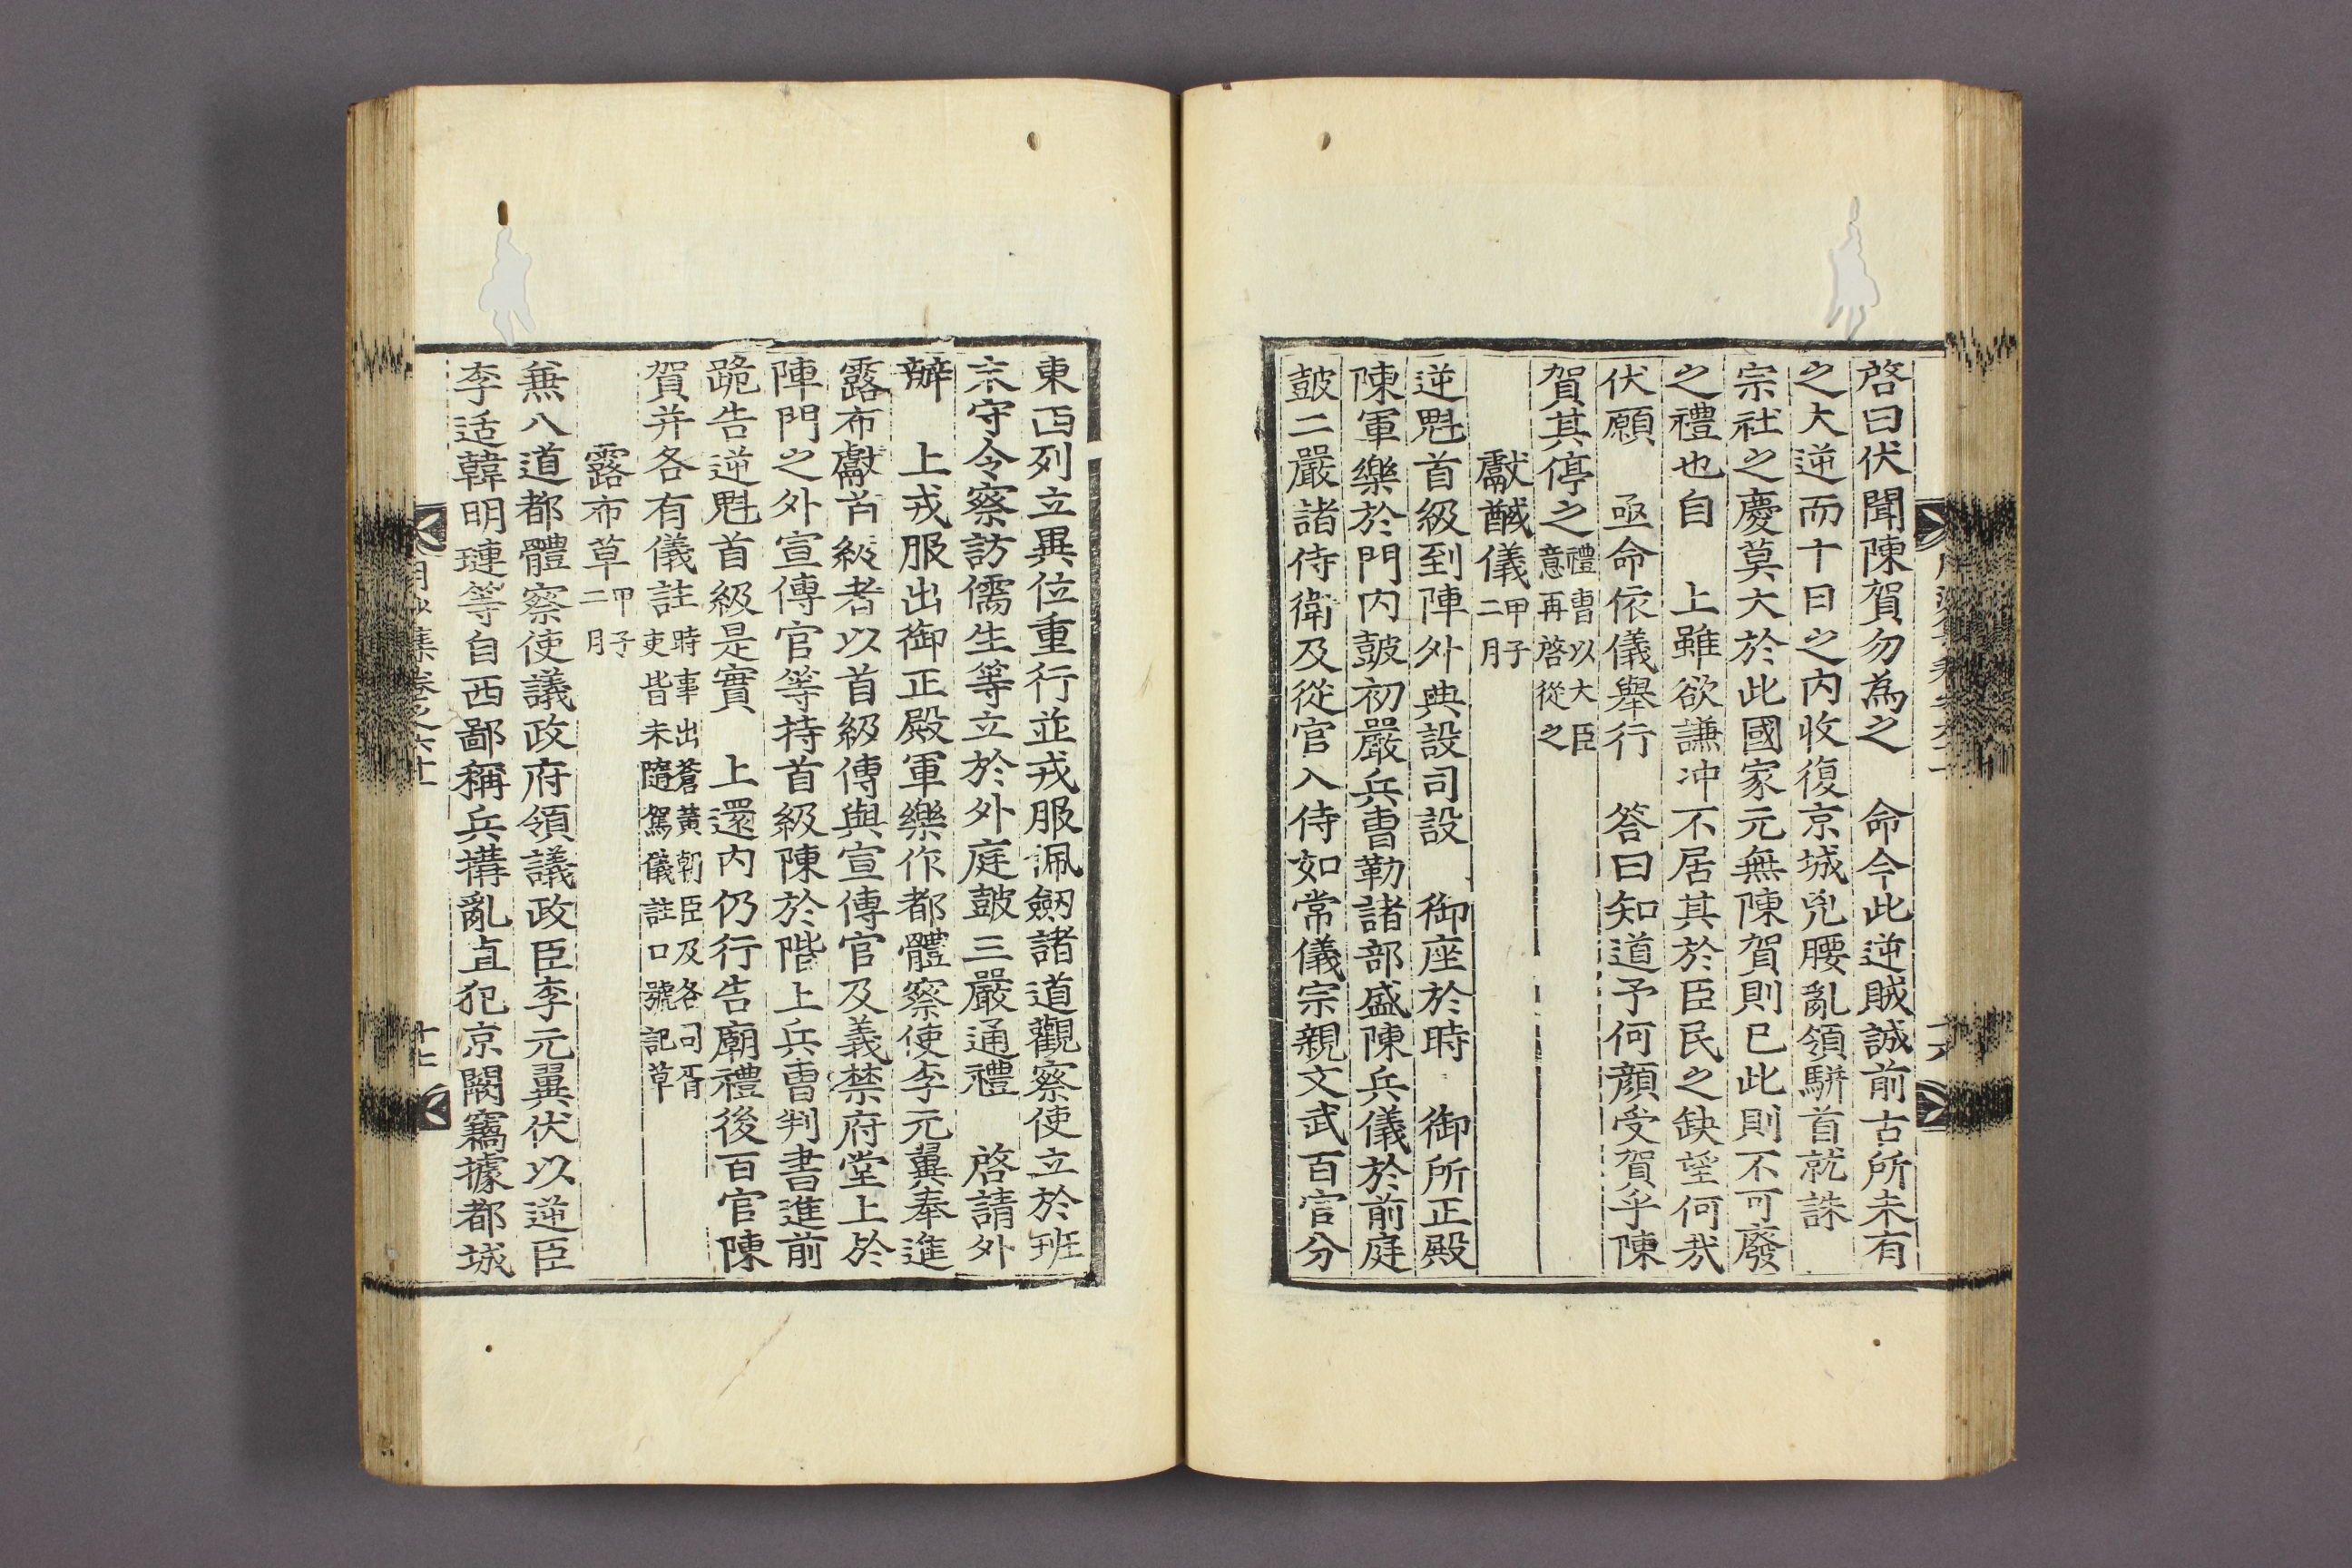 啓曰伏聞陳賀勿爲之　命今此逆賊誠前古所未有
之大逆而十日之内收復京城兇腰亂領駢首就誅
宗社之慶莫大於此國家元無陳賀則已此則不可廢
之禮也自　上雖欲謙冲不居其於臣民之缺望何哉
伏願　亟命依儀舉行　答曰知道予何顔受賀乎陳
賀其停之禮曹以大臣
意再啓從之
獻馘儀甲子
二月
逆魁首級到陣外典設司設　御座於時　御所正殿
陳軍樂於門内鼓初嚴兵曹勒諸部盛陳兵儀於前庭
鼓二嚴諸侍衛及從官入侍如常儀宗親文武百官分
東西列立異位重行並戎服佩劒諸道觀察使立於班
末守令察訪儒生等立於外庭鼓三嚴通禮　啓請外
辦　上戎服出御正殿軍樂作都體察使李元翼奉進
露布獻首級者以首級傳與宣傳官及義禁府堂上於
陣門之外宣傳官等持首級陳於階上兵曹判書進前
跪告逆魁首級是實　上還内仍行告廟禮後百官陳
賀并各有儀註時事出蒼黄朝臣及各司胥
吏皆未隨駕儀註口號記草
露布草甲子
二月
兼八道都體察使議政府領議政臣李元翼伏以逆臣
李适韓明璉等自西鄙稱兵搆亂直犯京闕竊據都城
十七